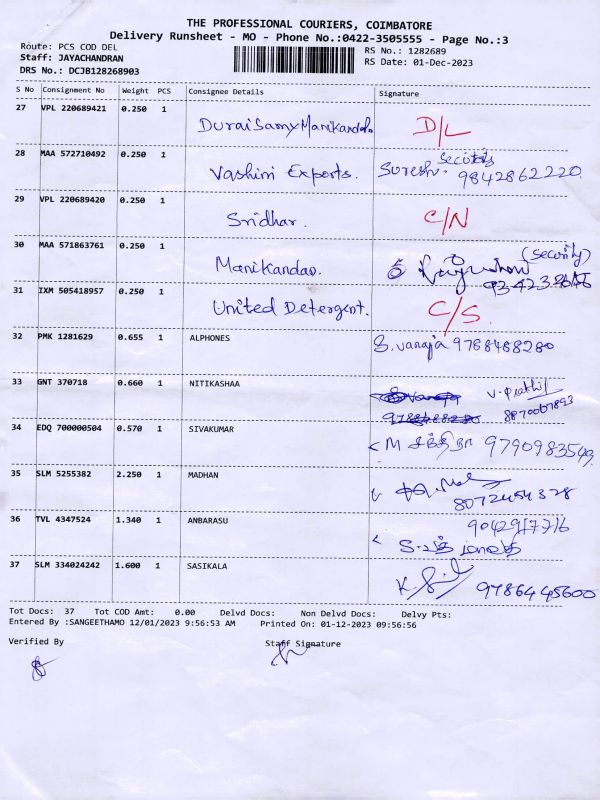 THE PROFESSIONAL COURIERS, COIMBATORE
Delivery Runsheet - MO - Phone No.:0422-3505555 - Page No.:3
Route: PCS COD DEL
RS No.: 1282689
Staff: JAYACHANDRAN
RS Date: 01-Dec-2023
DRS No.: DCJB128268903
S No Consignment No Weight PCS Consignee Details Signature
27 VPL 220689421 0.250 1 DuraiSamy Manikandan D/L
28 MAA 572710492 0.250 1 Vashini Exports. Suresh. 9842862220
29 VPL 220689420 0.250 1 Sridhar. C/N
30 MAA 571863761 0.250 1 Manikandan. (Security)
31 IXM 505418957 0.250 1 United Detergent. C/S.
32 PMK 1281629 0.655 1 ALPHONES S. vanaja 9788488280
33 GNT 370718 0.660 1 NITIKASHAA
34 EDQ 700000504 0.570 1 SIVAKUMAR M சித்ரா
35 SLM 5255382 2.250 1 MADHAN
36 TVL 4347524 1.340 1 ANBARASU
37 SLM 334024242 1.600 1 SASIKALA 9786445600
Tot Docs: 37 Tot COD Amt: 0.00 Delvd Docs: Non Delvd Docs: Delvy Pts:
Entered By :SANGEETHAMO 12/01/2023 9:56:53 AM Printed On: 01-12-2023 09:56:56
Verified By Staff Signature